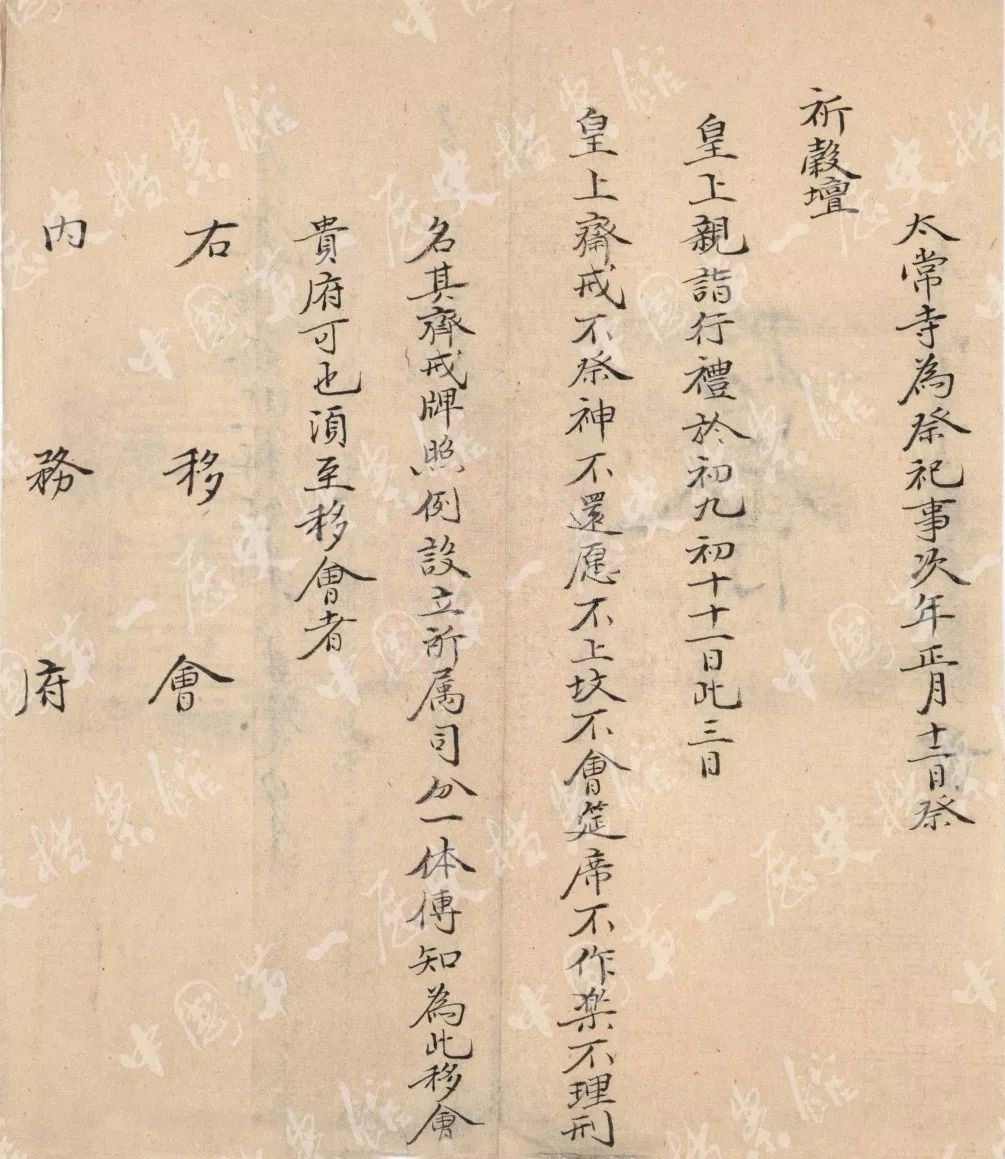 太常寺為祭祀事次年正月十二日祭
祈穀壇
皇上親詣行禮於初九初十十一日此三日
皇上齋戒不祭神不還愿不上坟不會筵席不作楽不理刑
名其齊戒牌照例設立所属司分一体傳知為此移會
貴府可也湏至移會者
右移會
内務府
中國第一歷史檔案館